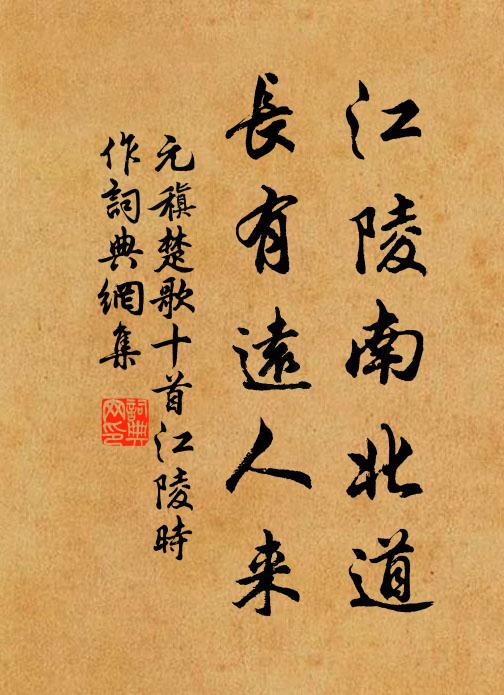 江陵南北道
長有遠人来
元稹楚歌十首江陵時
作詞典網集
詞典網印